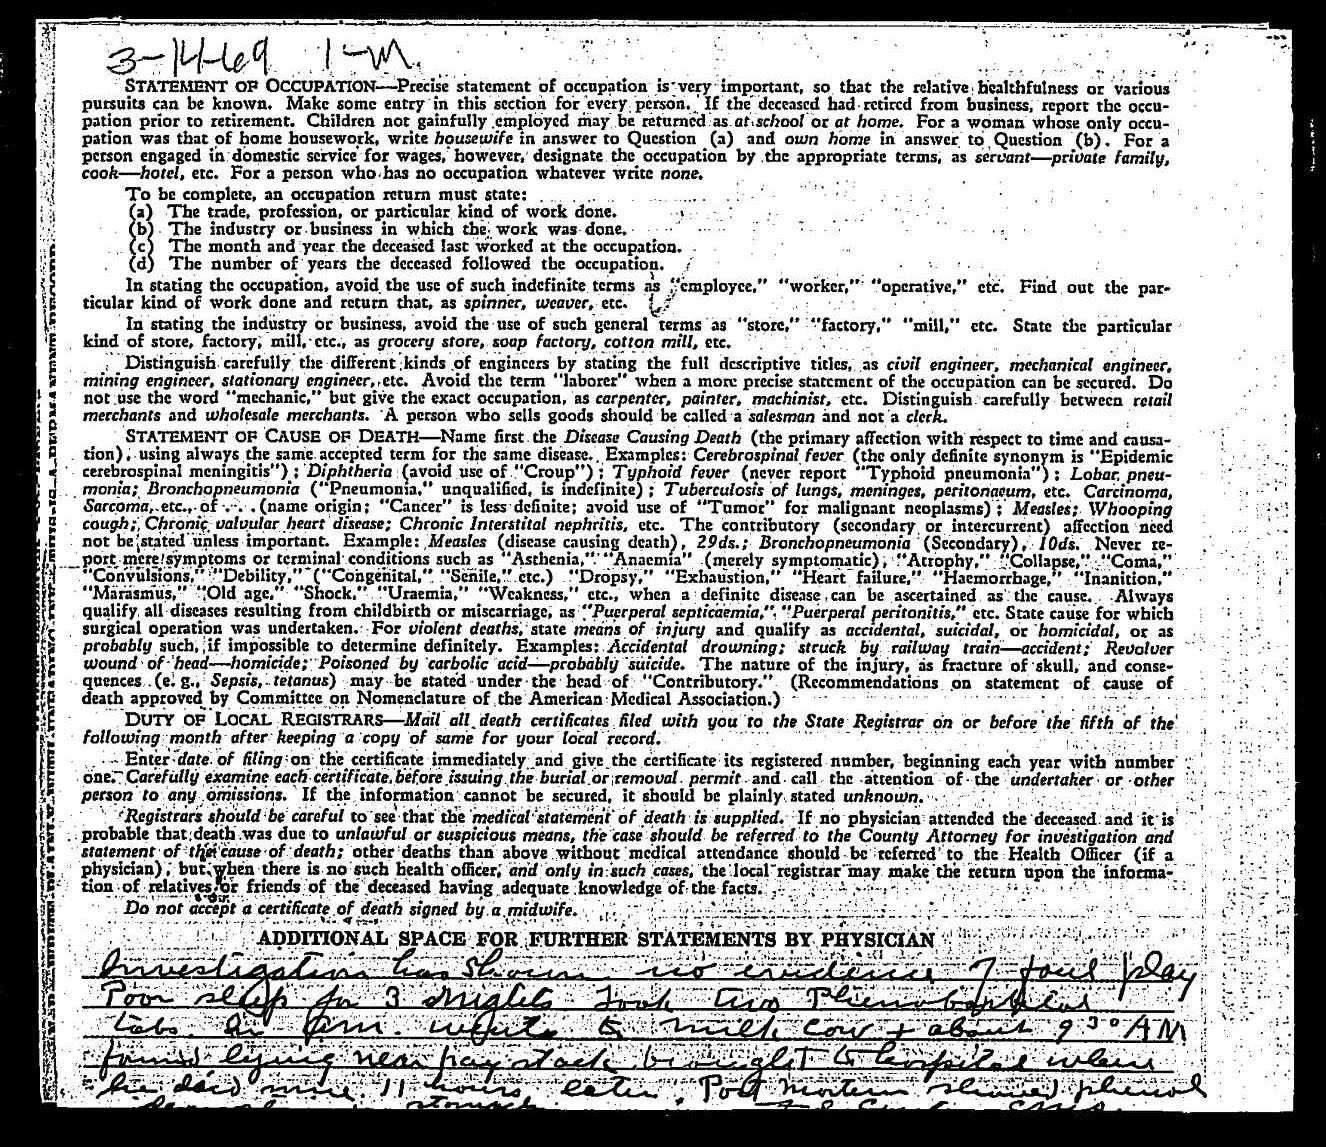 3-14-69 1-M.
STATEMENT OF OCCUPATION—Precise statement of occupation is very important, so that the relative healthfulness or various
pursuits can be known. Make some entry in this section for every person. If the deceased had retired from business, report the occu-
pation prior to retirement. Children not gainfully employed may be returned as at school or at home. For a woman whose only occu-
pation was that of home housework, write housewife in answer to Question (a) and own home in answer to Question (b). For a
person engaged in domestic service for wages, however, designate the occupation by the appropriate terms, as servant—private family,
cook—hotel, etc. For a person who has no occupation whatever write none.
To be complete, an occupation return must state:
(a) The trade, profession, or particular kind of work done.
(b) The industry or business in which the work was done.
(c) The month and year the deceased last worked at the occupation.
(d) The number of years the deceased followed the occupation.
In stating the occupation, avoid the use of such indefinite terms as "employee," "worker," "operative," etc. Find out the par-
ticular kind of work done and return that, as spinner, weaver, etc.
In stating the industry or business, avoid the use of such general terms as "store," "factory," "mill," etc. State the particular
kind of store, factory, mill, etc., as grocery store, soap factory, cotton mill, etc.
Distinguish carefully the different kinds of engineers by stating the full descriptive titles, as civil engineer, mechanical engineer,
mining engineer, stationary engineer, etc. Avoid the term "laborer" when a more precise statement of the occupation can be secured. Do
not use the word "mechanic," but give the exact occupation, as carpenter, painter, machinist, etc. Distinguish carefully between retail
merchants and wholesale merchants. A person who sells goods should be called a salesman and not a clerk.
STATEMENT OF CAUSE OF DEATH—Name first the Disease Causing Death (the primary affection with respect to time and causa-
tion), using always the same accepted term for the same disease. Examples: Cerebrospinal fever (the only definite synonym is "Epidemic
cerebrospinal meningitis"); Diphtheria (avoid use of "Croup"); Typhoid fever (never report "Typhoid pneumonia"); Lobar pneu-
monia; Bronchopneumonia ("Pneumonia," unqualified, is indefinite); Tuberculosis of lungs, meninges, peritonaeum, etc. Carcinoma,
Sarcoma, etc., of . . . (name origin; "Cancer" is less definite; avoid use of "Tumor" for malignant neoplasms); Measles; Whooping
cough; Chronic valvular heart disease; Chronic Interstital nephritis, etc. The contributory (secondary or intercurrent) affection need
not be stated unless important. Example: Measles (disease causing death), 29ds.; Bronchopneumonia (Secondary), 10ds. Never re-
port mere symptoms or terminal conditions such as "Asthenia," "Anaemia" (merely symptomatic), "Atrophy," "Collapse," "Coma,"
"Convulsions," "Debility," ("Congenital," "Senile," etc.) "Dropsy," "Exhaustion," "Heart failure," "Haemorrhage," "Inanition,"
"Marasmus," "Old age," "Shock," "Uraemia," "Weakness," etc., when a definite disease can be ascertained as the cause. Always
qualify all diseases resulting from childbirth or miscarriage, as "Puerperal septicaemia," "Puerperal peritonitis," etc. State cause for which
surgical operation was undertaken. For violent deaths, state means of injury and qualify as accidental, suicidal, or homicidal, or as
probably such, if impossible to determine definitely. Examples: Accidental drowning; struck by railway train—accident; Revolver
wound of head—homicide; Poisoned by carbolic acid—probably suicide. The nature of the injury, as fracture of skull, and conse-
quences (e. g., Sepsis, tetanus) may be stated under the head of "Contributory." (Recommendations on statement of cause of
death approved by Committee on Nomenclature of the American Medical Association.)
DUTY OF LOCAL REGISTRARS—Mail all death certificates filed with you to the State Registrar on or before the fifth of the
following month after keeping a copy of same for your local record.
Enter date of filing on the certificate immediately and give the certificate its registered number, beginning each year with number
one. Carefully examine each certificate before issuing the burial or removal permit and call the attention of the undertaker or other
person to any omissions. If the information cannot be secured, it should be plainly stated unknown.
Registrars should be careful to see that the medical statement of death is supplied. If no physician attended the deceased and it is
probable that death was due to unlawful or suspicious means, the case should be referred to the County Attorney for investigation and
statement of the cause of death; other deaths than above without medical attendance should be referred to the Health Officer (if a
physician), but when there is no such health officer, and only in such cases, the local registrar may make the return upon the informa-
tion of relatives or friends of the deceased having adequate knowledge of the facts.
Do not accept a certificate of death signed by a midwife.
ADDITIONAL SPACE FOR FURTHER STATEMENTS BY PHYSICIAN
Investigation has shown no evidence of foul play
Poor sleep for 3 nights. Took two Phenobarbital
tabs. in a.m. went to milk cow + about 9 30 AM
found lying near hay stack brought to hospital where
he died some 11 hours later. Post mortem showed phenol
stomach